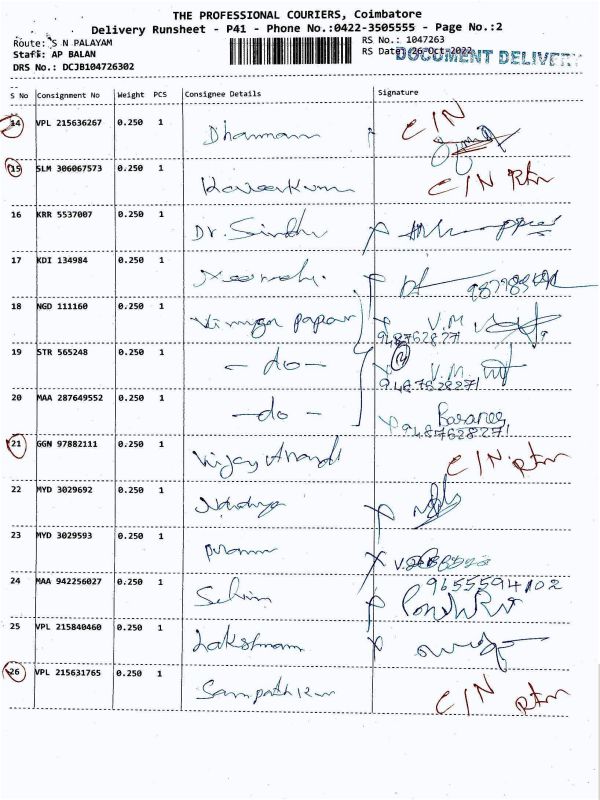 THE PROFESSIONAL COURIERS, Coimbatore
Delivery Runsheet - P41 - Phone No.:0422-3505555 - Page No.:2
Route: S N PALAYAM
RS No.: 1047263
Staff: AP BALAN
RS Date: 26-Oct-2022
DOCUMENT DELIVERY
DRS No.: DCJB104726302
S No Consignment No Weight PCS Consignee Details Signature
14 VPL 215636267 0.250 1 C/N
15 SLM 306067573 0.250 1 C/N Rtn
16 KRR 5537007 0.250 1 Dr. Sindhu
17 KDI 134984 0.250 1
18 NGD 111160 0.250 1 V.M
9487628271
19 STR 565248 0.250 1 - do - V.M.
9487628271
20 MAA 287649552 0.250 1 - do -
9487628271
21 GGN 97882111 0.250 1 Vijay Anand C/N Rtn
22 MYD 3029692 0.250 1
23 MYD 3029593 0.250 1
9655594102
24 MAA 942256027 0.250 1 Selvin
25 VPL 215840460 0.250 1 Lakshmanan
26 VPL 215631765 0.250 1 Sampathkum C/N Rtn